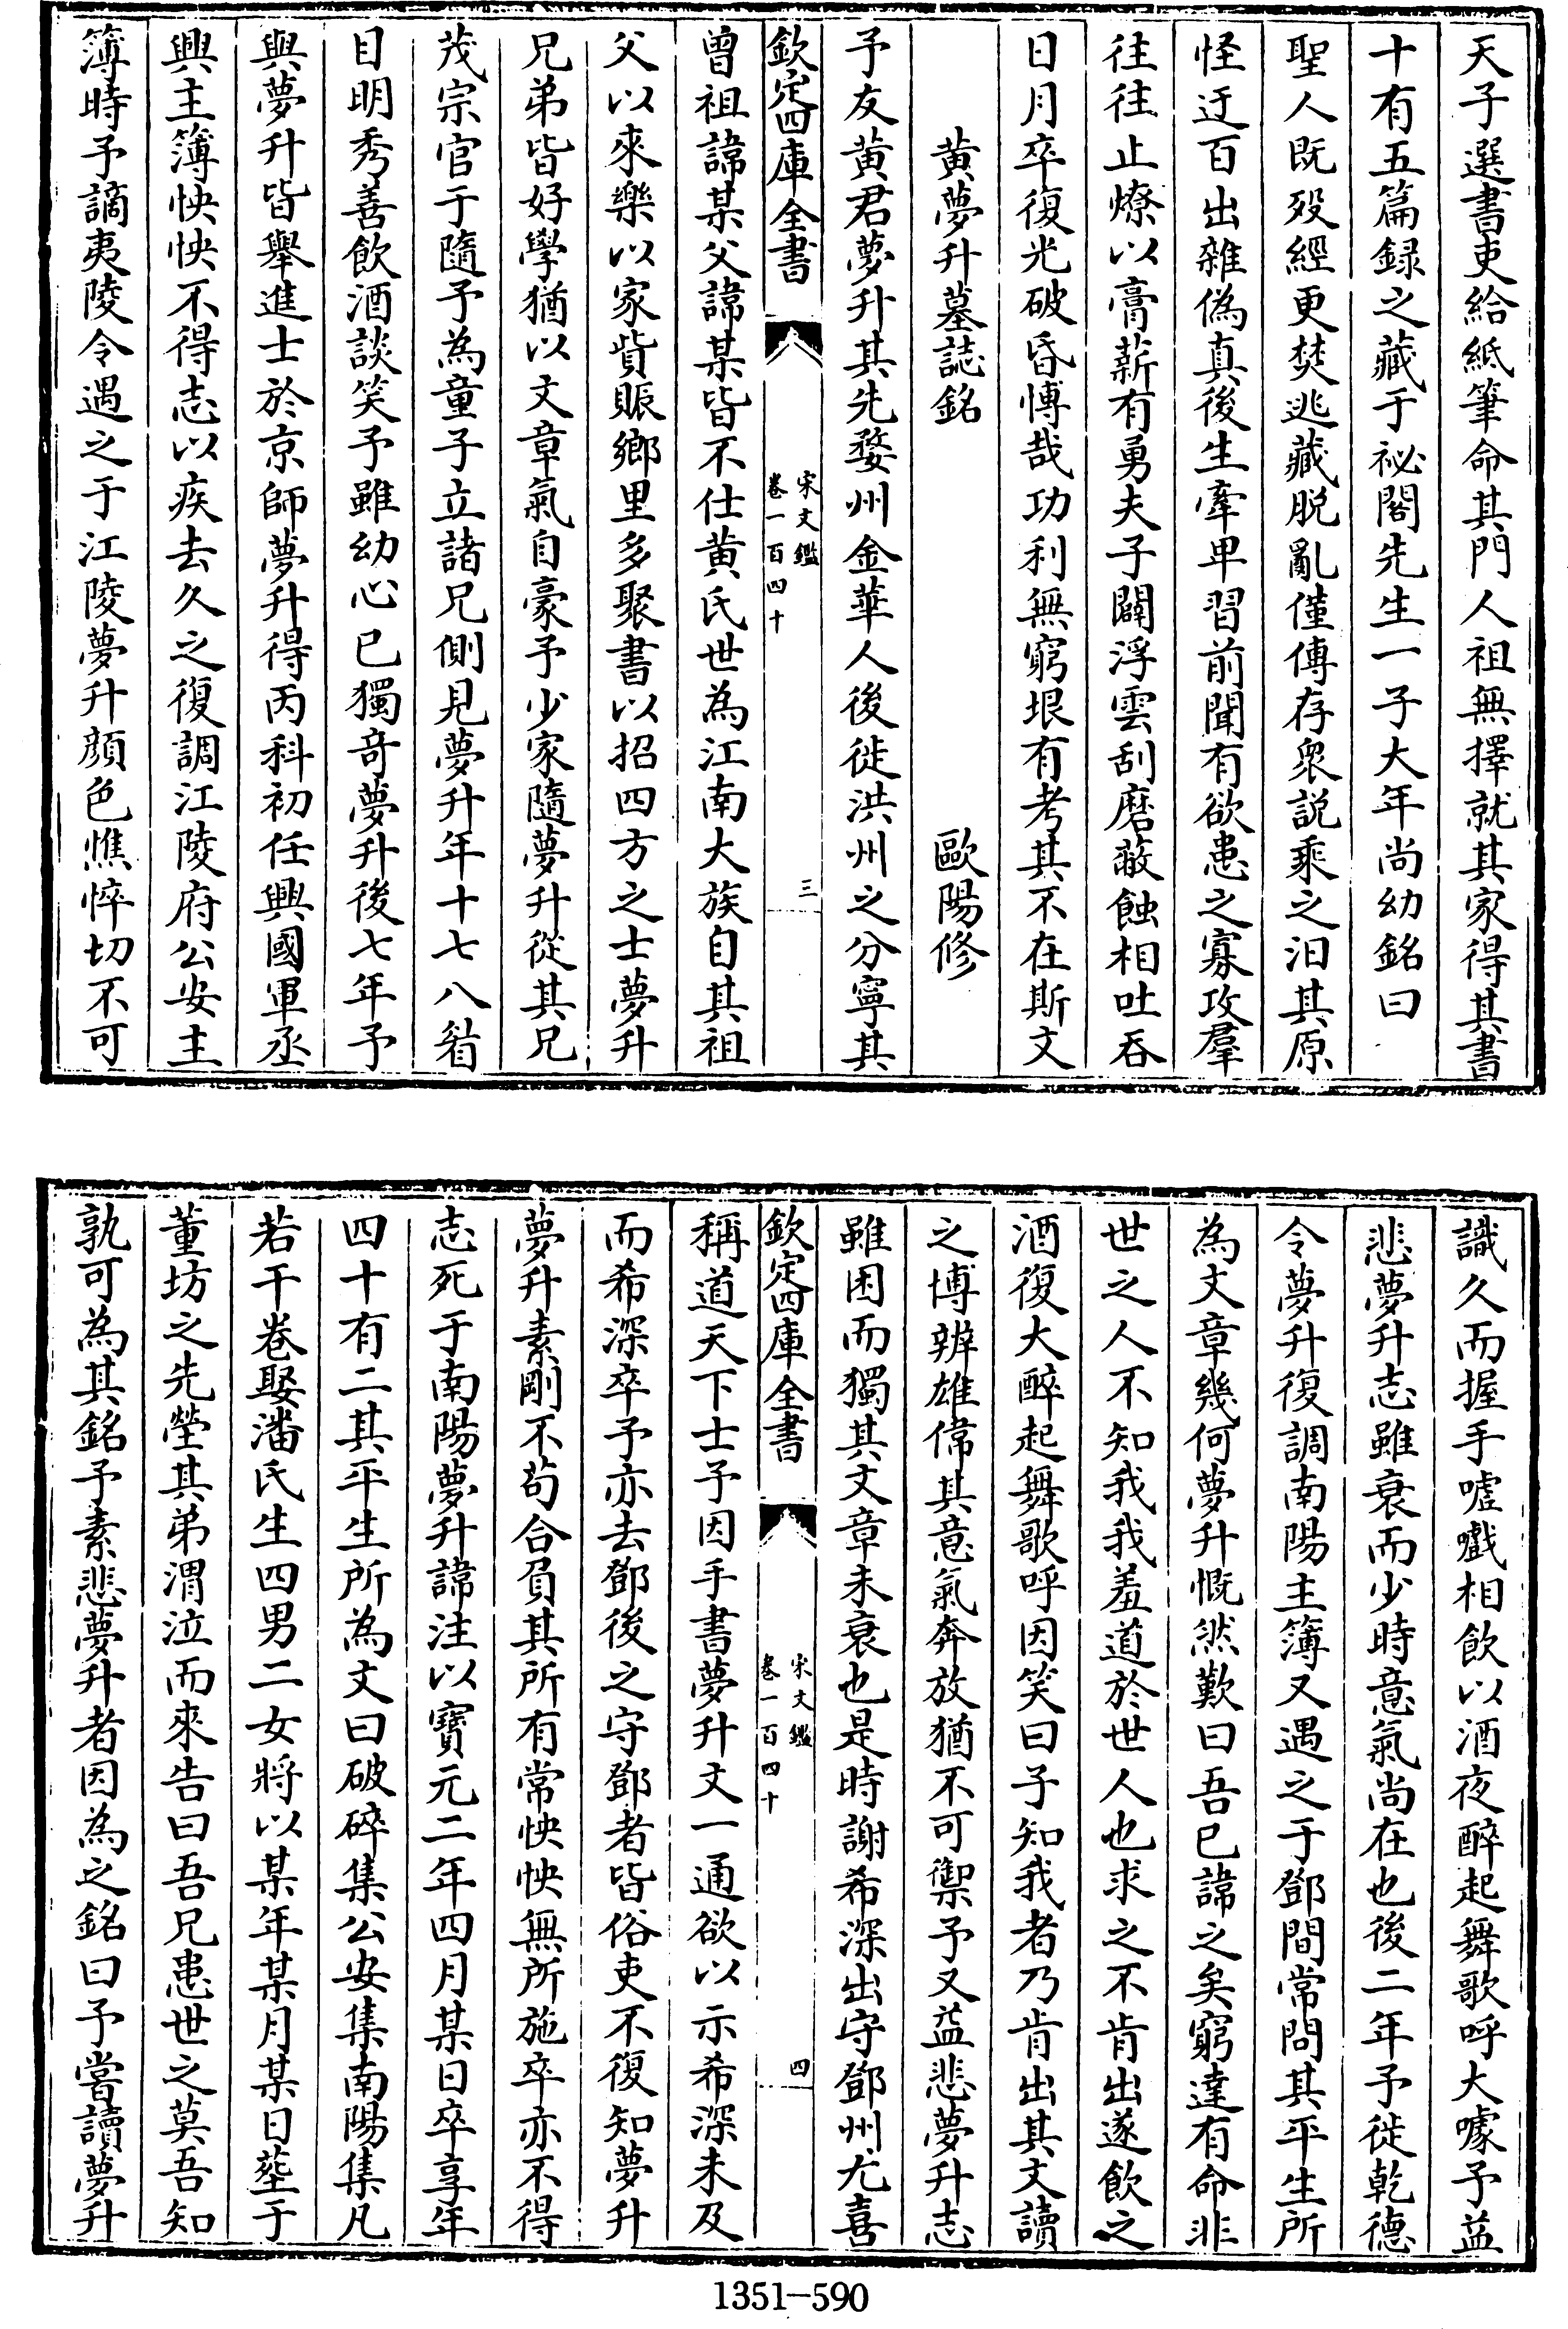 天子選書吏給紙筆命其門人祖無擇就其家得其書
十有五篇録之藏于祕閣先生一子大年尚幼銘曰
聖人既歿經更焚逃藏脱亂僅傳存衆説乘之汨其原
怪迂百出雜偽真後生牽卑習前聞有欲患之寡攻羣
往往止燎以膏薪有勇夫子闢浮雲刮磨蔽蝕相吐吞
日月卒復光破昏博哉功利無窮垠有考其不在斯文
黄夢升墓誌銘 歐陽修
予友黄君夢升其先婺州金華人後徙洪州之分寧其
欽定四庫全書 宋文鑑 卷一百四十 三
曾祖諱某父諱某皆不仕黄氏世為江南大族自其祖
父以來樂以家貲賑鄉里多聚書以招四方之士夢升
兄弟皆好學猶以文章氣自豪予少家隨夢升從其兄
茂宗官于隨予為童子立諸兄側見夢升年十七八眉
目明秀善飲酒談笑予雖幼心已獨奇夢升後七年予
與夢升皆舉進士於京師夢升得丙科初任興國軍丞
興主簿怏怏不得志以疾去久之復調江陵府公安主
簿時予謫夷陵令遇之于江陵夢升顔色憔悴切不可
識久而握手嘘嚱相飲以酒夜醉起舞歌呼大噱予益
悲夢升志雖衰而少時意氣尚在也後二年予徙乾德
令夢升復調南陽主簿又遇之于鄧間常問其平生所
為文章幾何夢升慨然歎曰吾已諱之矣窮達有命非
世之人不知我我羞道於世人也求之不肯出遂飲之
酒復大醉起舞歌呼因笑曰子知我者乃肯出其文讀
之博辨雄偉其意氣奔放猶不可禦予又益悲夢升志
雖困而獨其文章未衰也是時謝希深出守鄧州尤喜
欽定四庫全書 宋文鑑 卷一百四十 四
稱道天下士予因手書夢升文一通欲以示希深未及
而希深卒予亦去鄧後之守鄧者皆俗吏不復知夢升
夢升素剛不苟合負其所有常怏怏無所施卒亦不得
志死于南陽夢升諱注以寶元二年四月某日卒享年
四十有二其平生所為文曰破碎集公安集南陽集凡
若干卷娶潘氏生四男二女將以某年某月某日葬于
董坊之先塋其弟渭泣而來告曰吾兄患世之莫吾知
孰可為其銘予素悲夢升者因為之銘曰予嘗讀夢升
1351-590